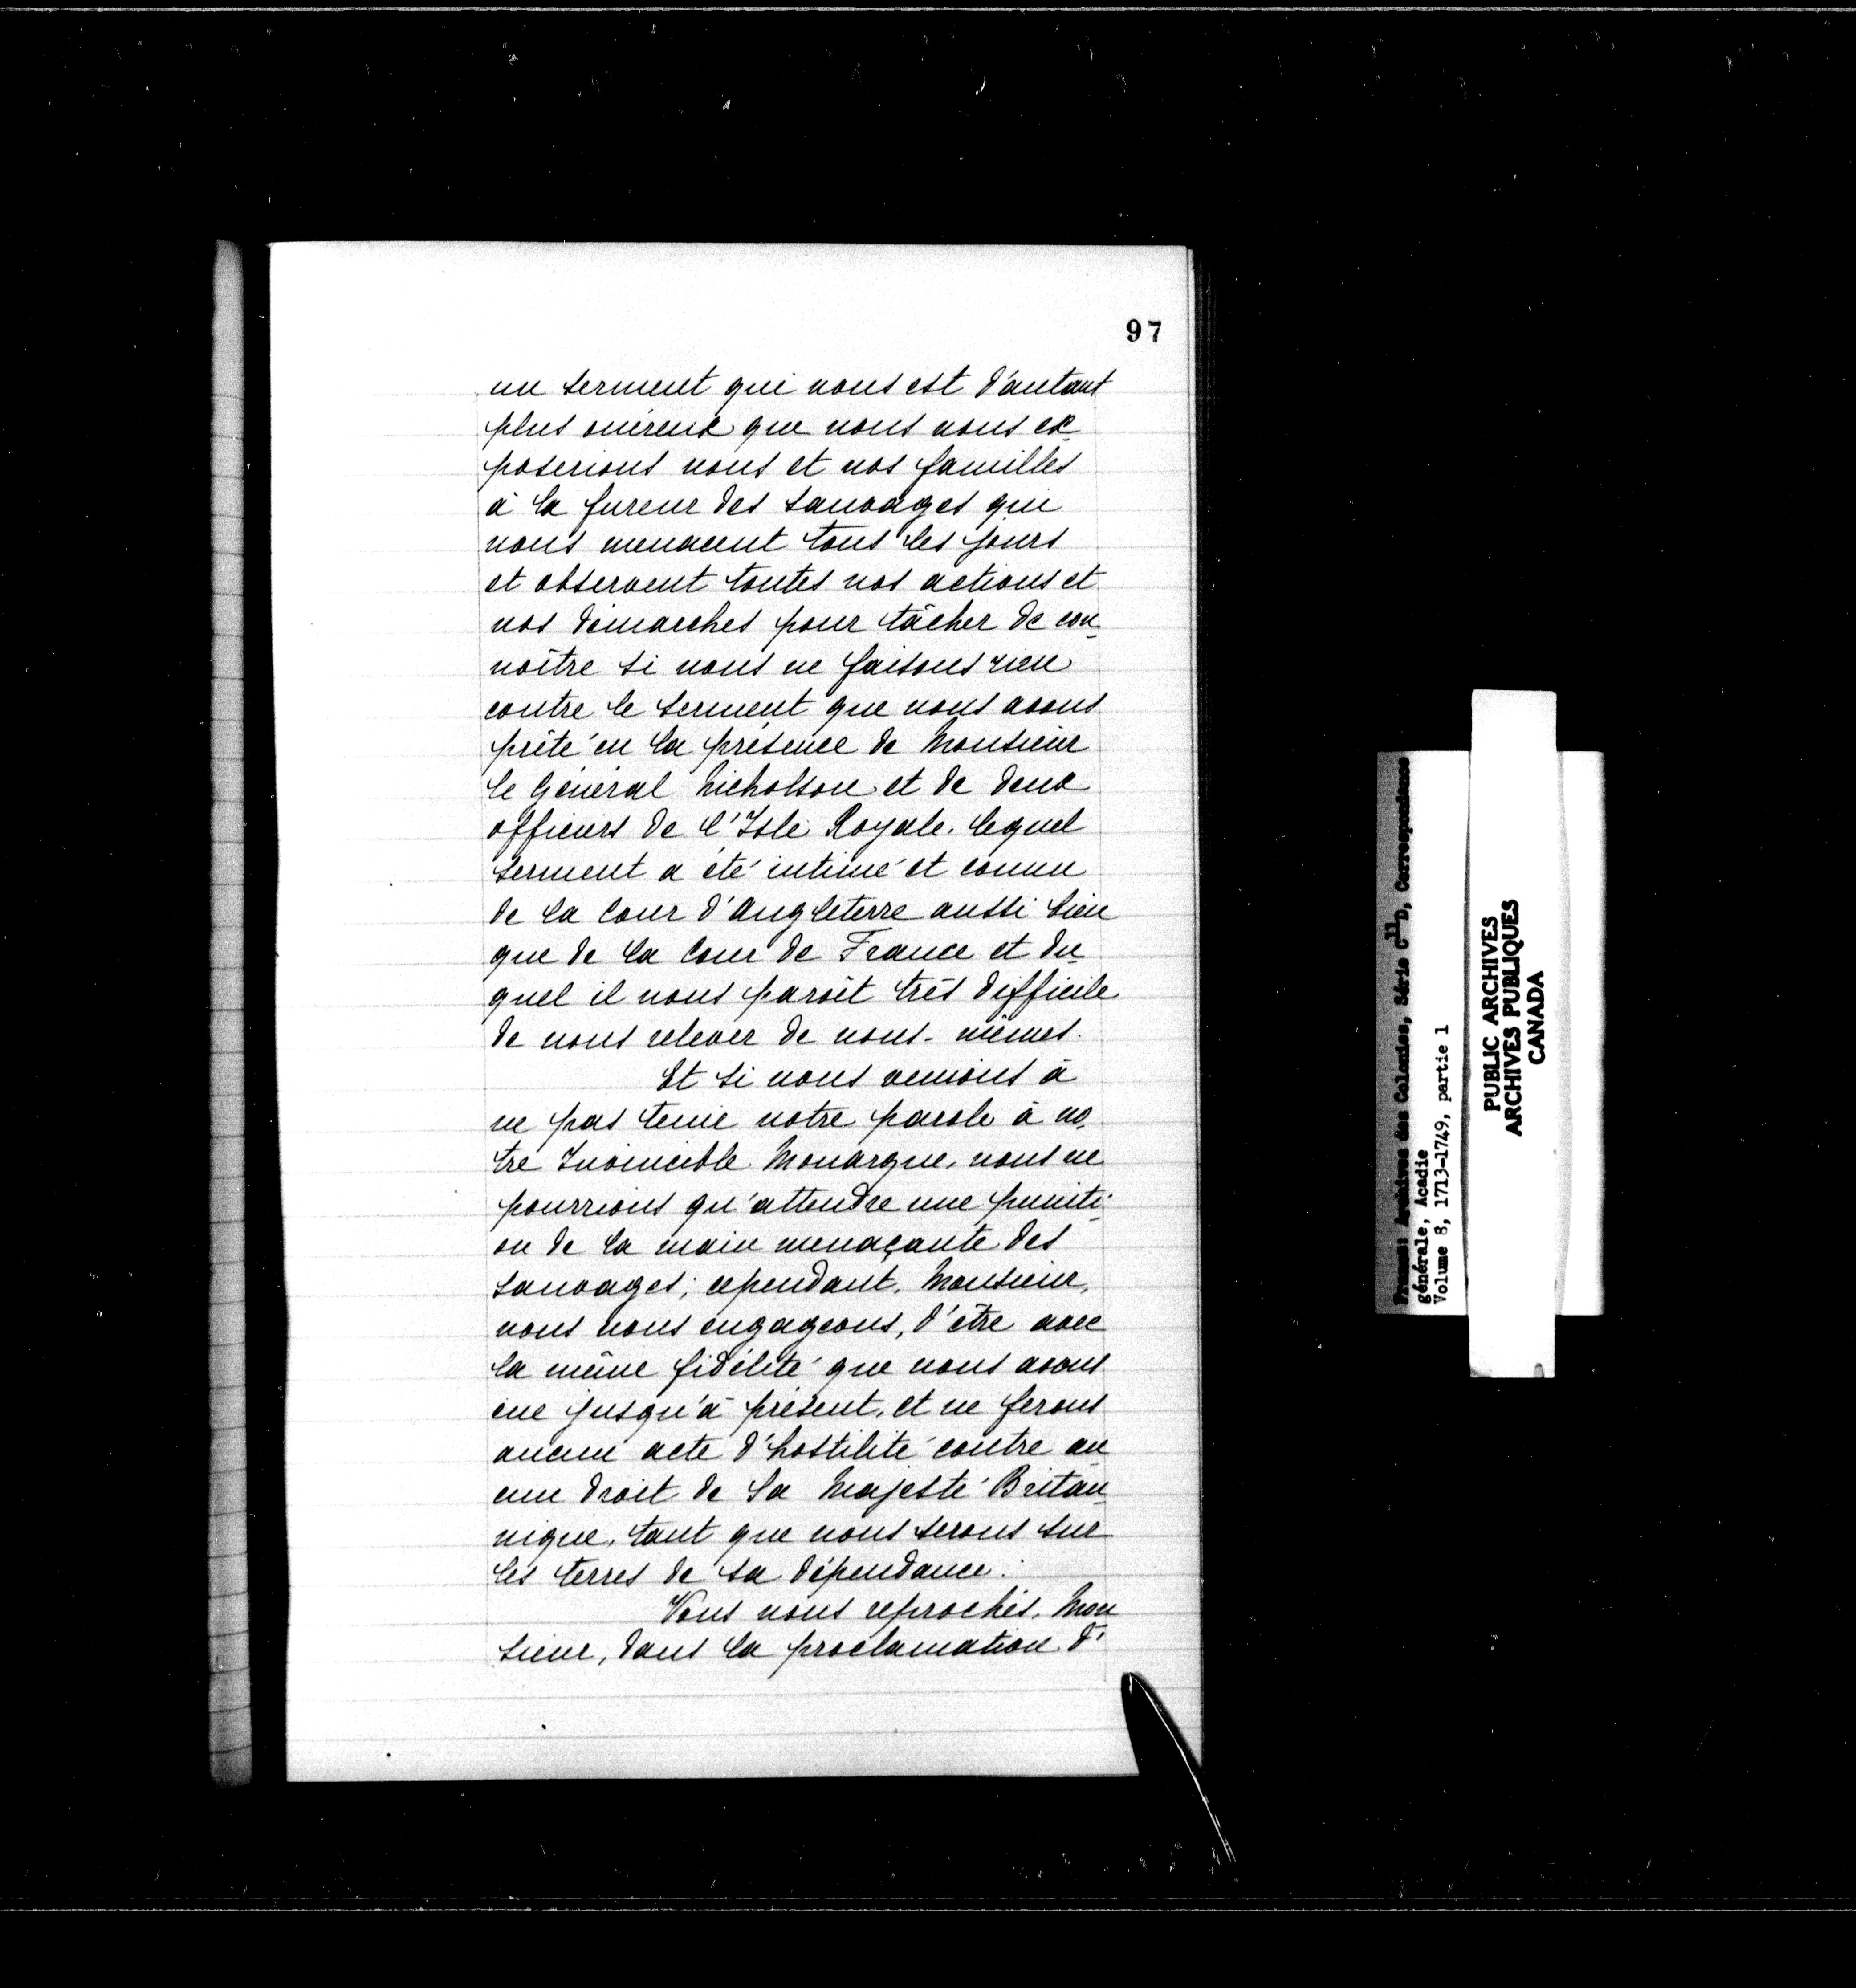 97
un serment qui nous est d'autant
plus onéreux que nous nous ex-
poserions nous et nos familles
à la fureur des sauvages qui
nous menacent tous les jours
et observent toutes nos actions et
nos démarches pour tâcher de con-
noître si nous ne faisons rien
contre le serment que nous avons
prêté en la présence de Monsieur
le Général Nicholson et de deux
officiers de l'Isle Royale, lequel
serment a été intimé et connu
de la Cour d'Angleterre aussi bien
que de la Cour de France et du-
quel il nous paroît très difficile
de nous relever de nous-mêmes.
Et si nous venions à
ne pas tenir notre parole à no-
tre Invincible Monarque, nous ne
pourrions qu'attendre une puniti-
on de la main menaçante des
sauvages; cependant, Monsieur,
nous nous engageons, d'être avec
la même fidélité que nous avons
eue jusqu'à présent, et ne ferons
aucun acte d'hostilité contre au-
cun droit de Sa Majesté Britan-
nique, tant que nous serons sur
les terres de sa dépendance.
Vous nous reprochés, Mon
sieur, dans la proclamation d'
France: Archives des Colonies, Série C11D, Correspondance
générale, Acadie
Volume 8, 1713-1749, partie 1
PUBLIC ARCHIVES
ARCHIVES PUBLIQUES
CANADA